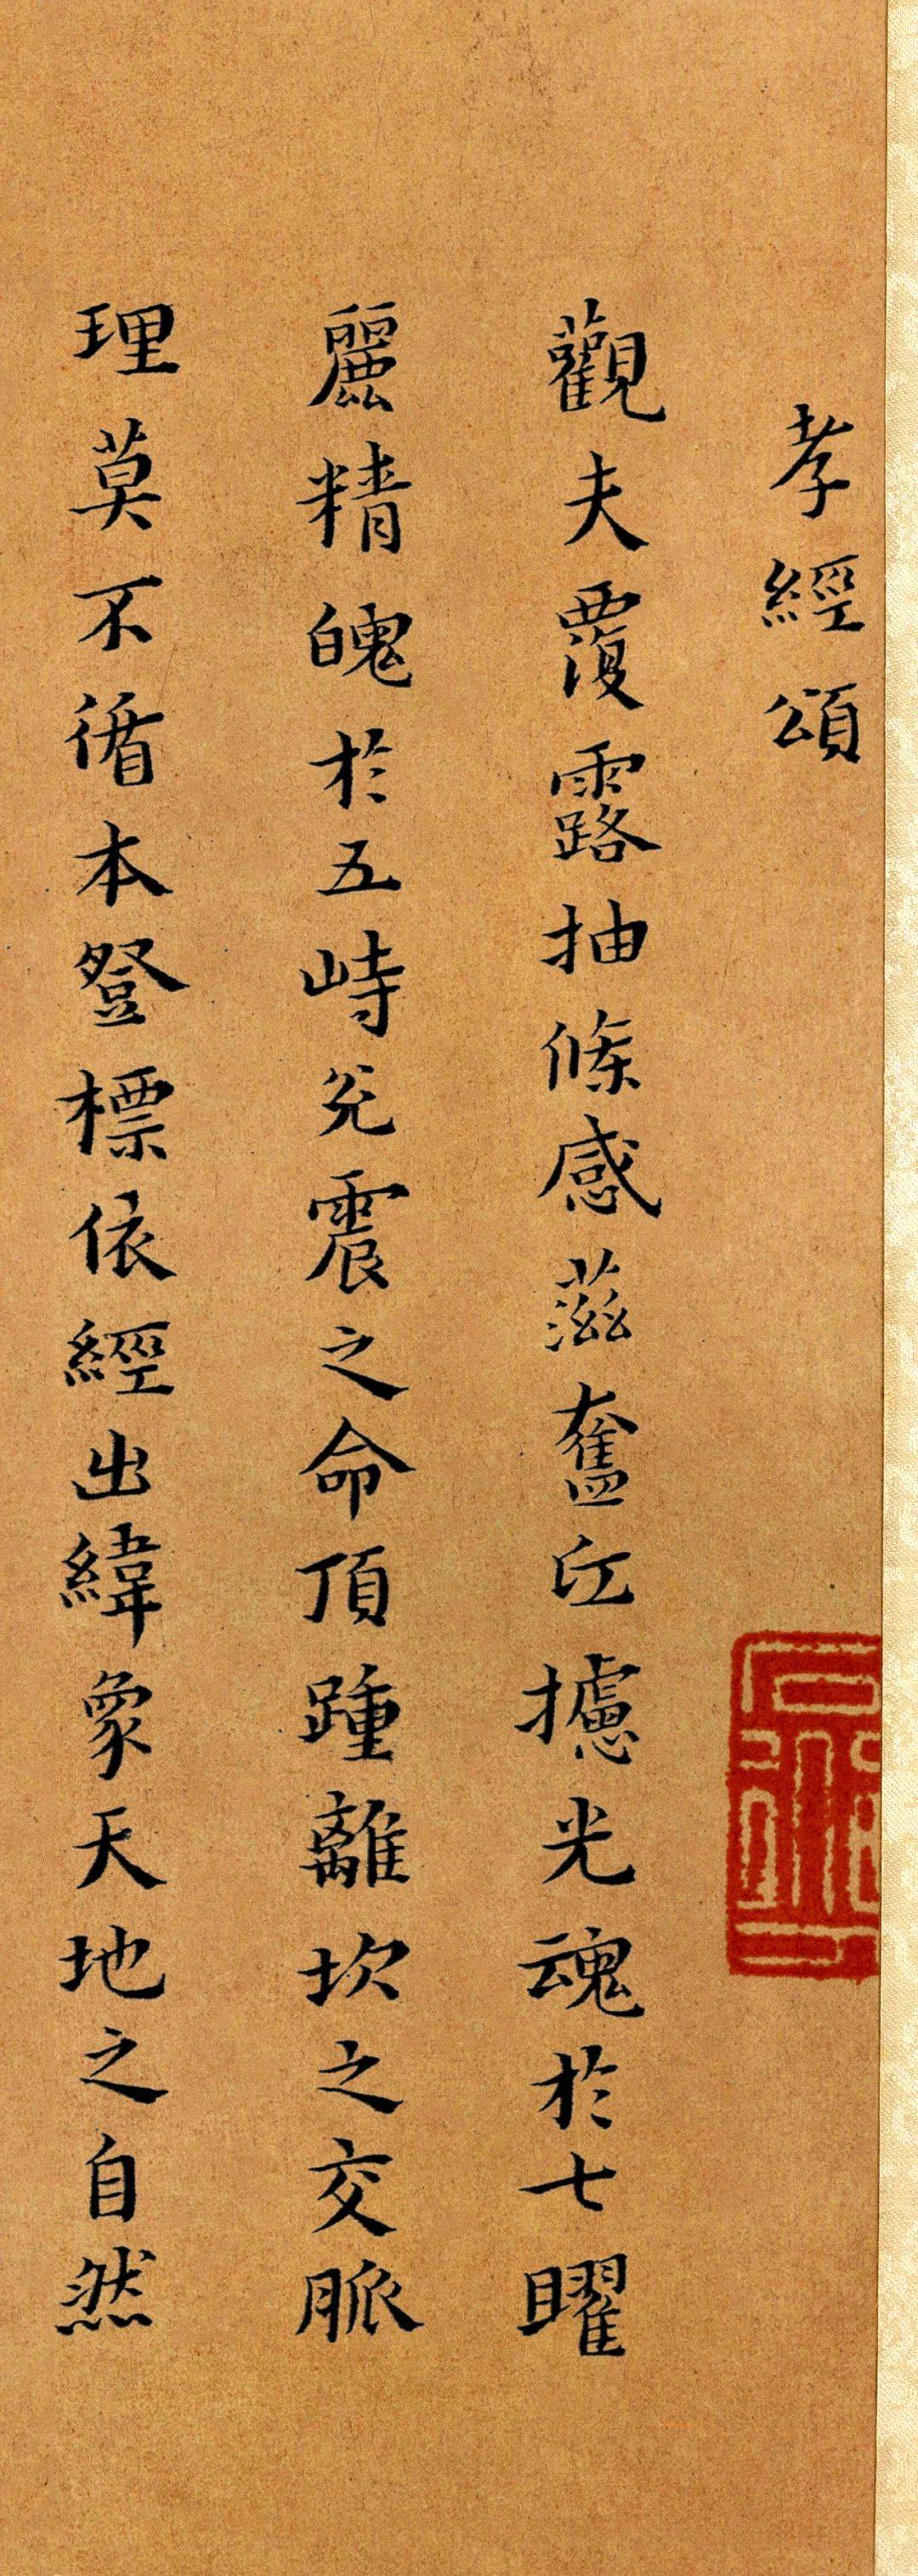 孝經頌
觀夫覆露抽條感蒞奮匠攄光魂於七曜
麗精魄於五峙兊震之命頂踵離坎之交脈
理莫不循本登標依經出緯象天地之自然